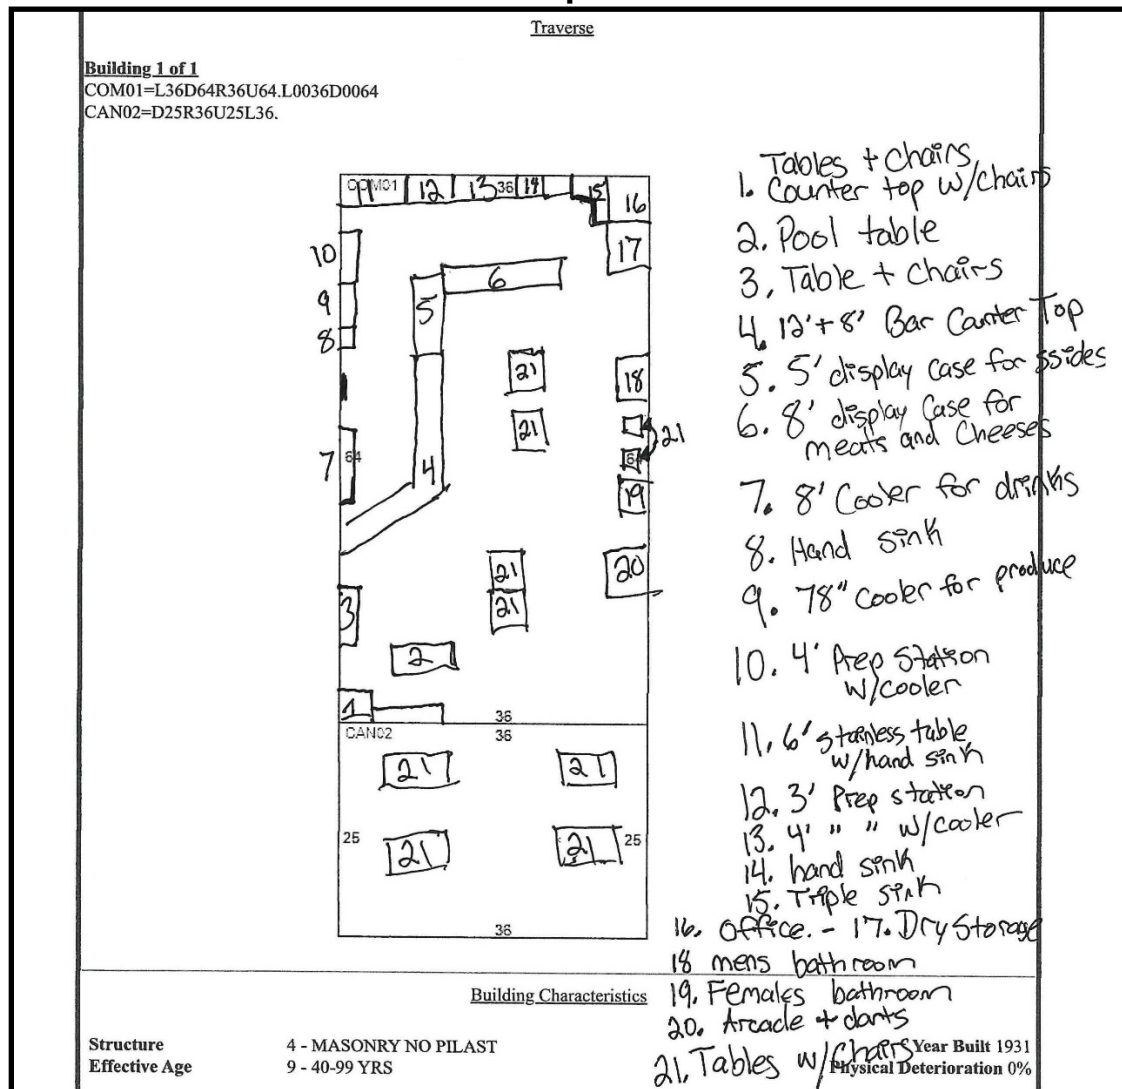 Traverse
Building 1 of 1
COM01=L36D64R36U64.L0036D0064
CAN02=D25R36U25L36.
COM01
11
12
13
36
14
15
16
10
17
9
5
6
8
21
18
21
21
7
64
4
64
19
21
20
21
3
2
1
36
CAN02
36
21
21
25
21
21
25
36
Tables + Chairs
1. Counter top w/chairs
2. Pool table
3. Table + Chairs
4. 12'+8' Bar Counter Top
5. 5' display case for ssides
6. 8' display Case for
meats and Cheeses
7. 8' Cooler for drinks
8. Hand sink
9. 78" cooler for produce
10. 4' Prep Station
w/cooler
11. 6' stainless table
w/hand sink
12. 3' Prep station
13. 4' " " w/cooler
14. hand sink
15. Triple sink
16. office. - 17. Dry Storage
18 mens bathroom
Building Characteristics
19. Females bathroom
20. Arcade + darts
21. Tables w/Chairs
Structure 4 - MASONRY NO PILAST Year Built 1931
Effective Age 9 - 40-99 YRS Physical Deterioration 0%